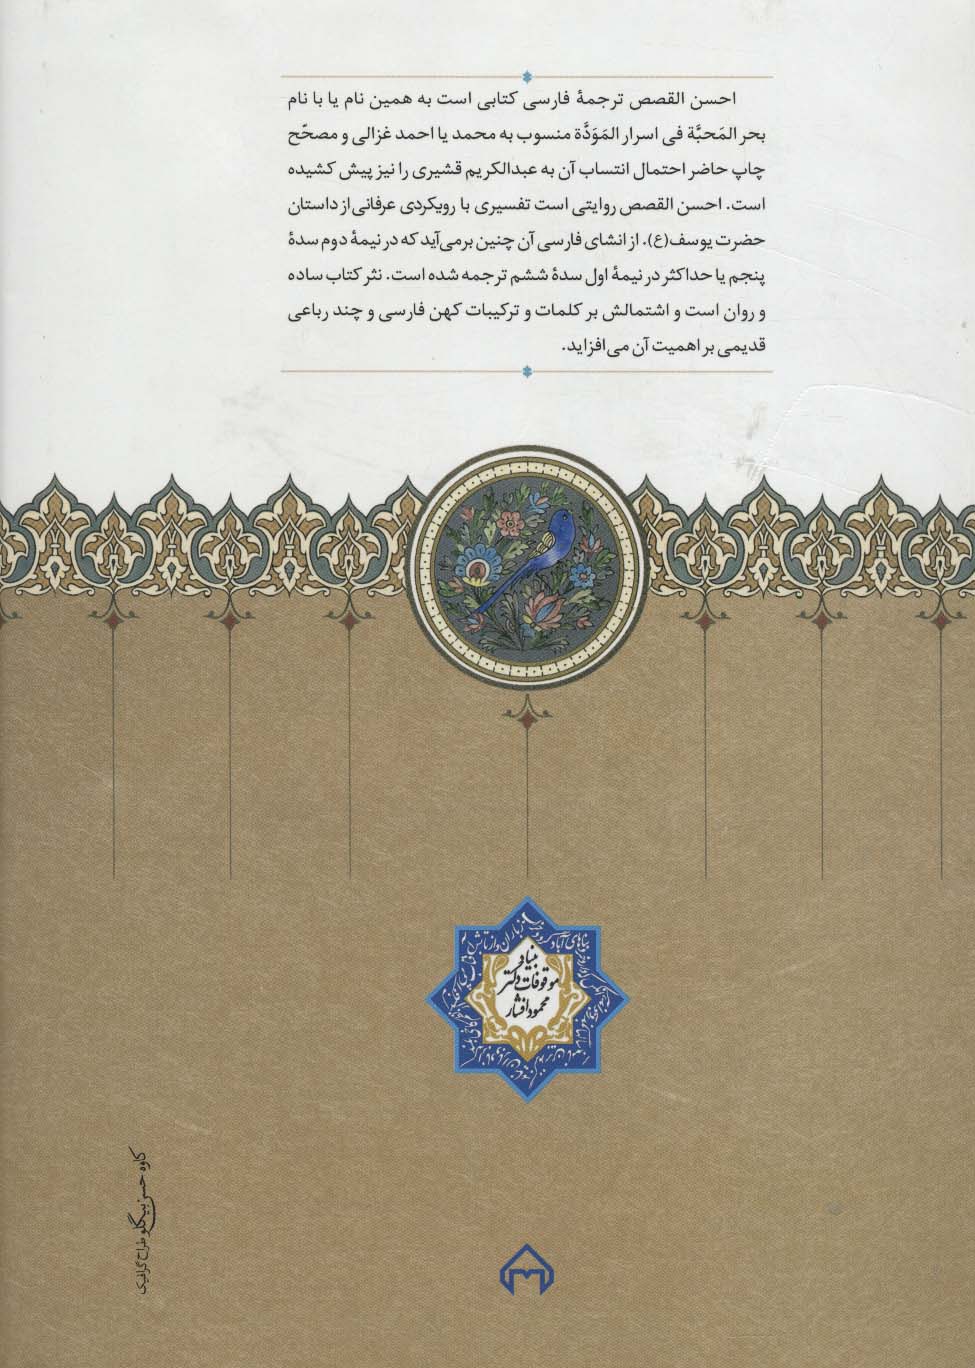 احسن القصص ترجمهٔ فارسی کتابی است به همین نام یا با نام
بحر المَحبَّة فی اسرار المَوَدَّة منسوب به محمد یا احمد غزالی و مصحّح
چاپ حاضر احتمال انتساب آن به عبدالکریم قشیری را نیز پیش کشیده
است. احسن القصص روایتی است تفسیری با رویکردی عرفانی از داستان
حضرت یوسف(ع). از انشای فارسی آن چنین برمی‌آید که در نیمهٔ دوم سدهٔ
پنجم یا حداکثر در نیمهٔ اول سدهٔ ششم ترجمه شده است. نثر کتاب ساده
و روان است و اشتمالش بر کلمات و ترکیبات کهن فارسی و چند رباعی
قدیمی بر اهمیت آن می‌افزاید.
بنیاد
موقوفات دکتر
محمود افشار
کاوه حسن بیگلو طراح گرافیک